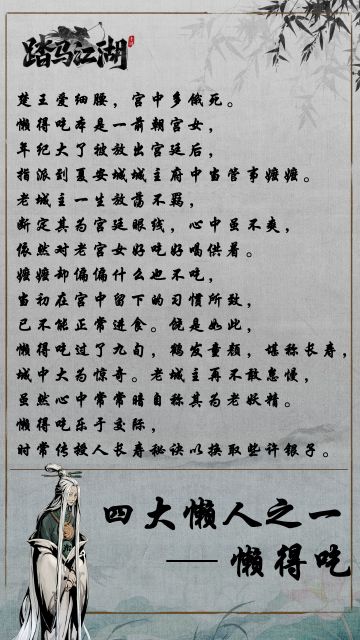 踏马江湖
楚王爱细腰，宫中多饿死。
懒得吃本是一前朝宫女，
年纪大了被放出宫廷后，
指派到夏安城城主府中当管事嬷嬷。
老城主一生放荡不羁，
断定其为宫廷眼线，心中虽不爽，
依然对老宫女好吃好喝供着。
嬷嬷却偏偏什么也不吃，
当初在宫中留下的习惯所致，
已不能正常进食。饶是如此，
懒得吃过了九旬，鹤发童颜，堪称长寿，
城中大为惊奇。老城主再不敢怠慢，
虽然心中常常暗自称其为老妖精。
懒得吃乐于交际，
时常传授人长寿秘诀以换取些许银子。
四大懒人之一
——懒得吃